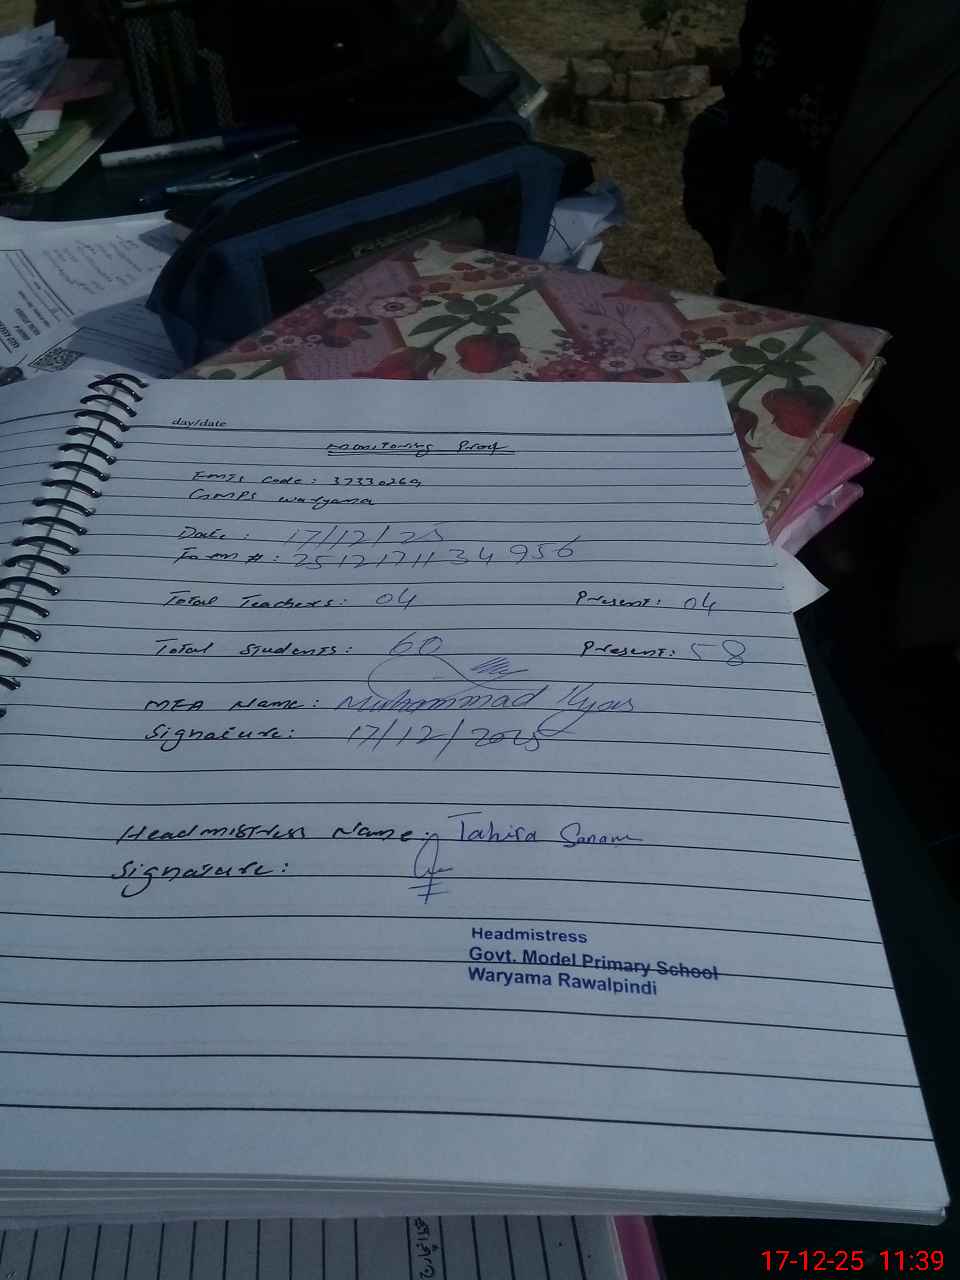 day/date
Monitoring Proof
EMIS Code: 37330269
GMPS Waryama
Date: 17/12/25
Form #: 2512171134956
Total Teachers: 04 Present: 04
Total Students: 60 Present: 58
MEA Name: Muhammad Ilyas
Signature: 17/12/2025
Headmistress Name: Tahira Sanam
Signature:
Headmistress
Govt. Model Primary School
Waryama Rawalpindi
17-12-25 11:39